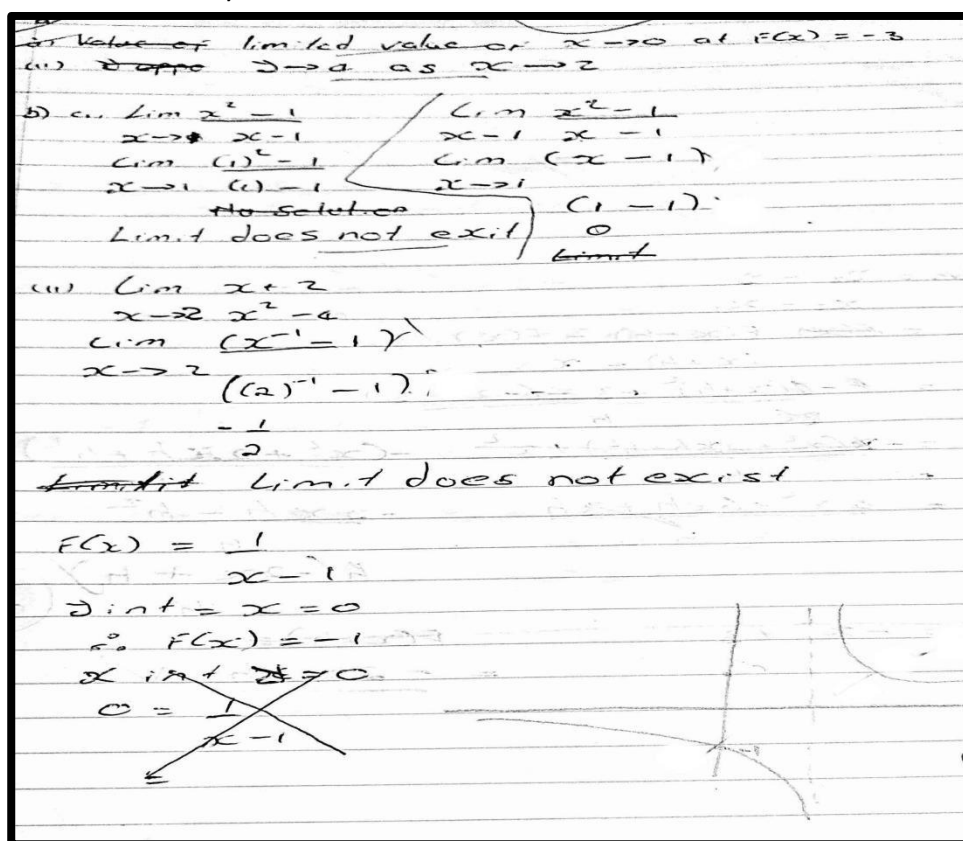 a) Value of limited value of x → 0 at F(x) = -3
(ii) y → 4 as x → 2
b) (i) Lim x² - 1
x → x - 1
Lim (1)² - 1
x → 1 (1) - 1
No Solution
Limit does not exit
Lim x² - 1
x - 1 x - 1
Lim (x - 1)
x → 1
(1 - 1)
0
Limit
(ii) Lim x + 2
x → 2 x² - 4
Lim (x⁻¹ - 1)
x → 2
((2)⁻¹ - 1)
- 1
2
Limit does not exist
F(x) = 1
x - 1
y int = x = 0
∴ F(x) = -1
x int = 0
0 = 1
x - 1
-1